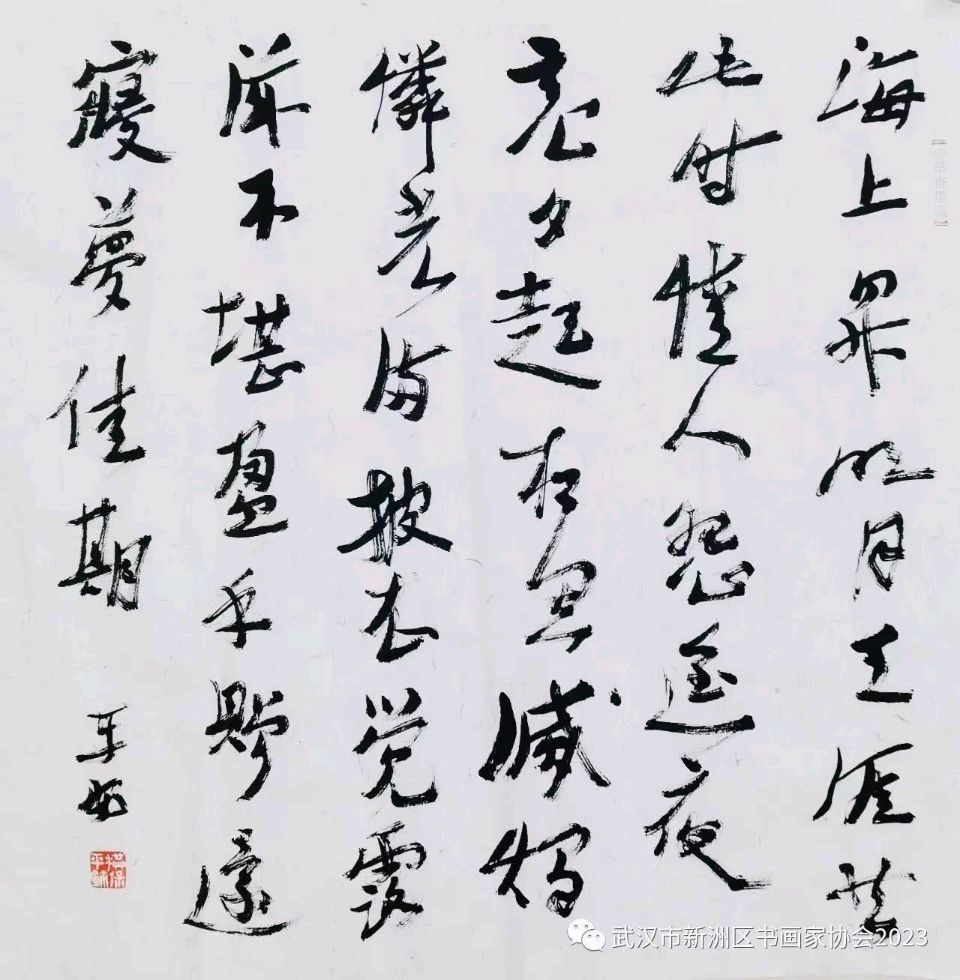 海上昇明月天涯共
此时情人怨遥夜
竟夕起相思滅燭
憐光满披衣觉露
滋不堪盈手贈還
寝夢佳期
武汉市新洲区书画家协会2023